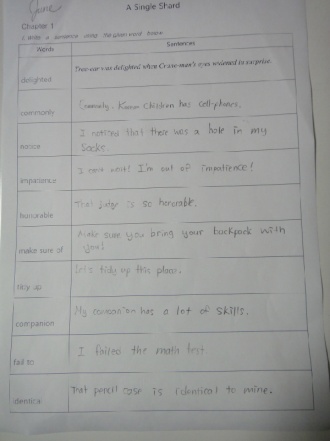 June
A Single Shard
Chapter 1
Write a sentence using the given word below
Words Sentences
delighted Tree-ear was delighted when Crane-man's eyes widened in surprise.
commonly Commonly, Korean children has cell-phones.
notice I noticed that there was a hole in my
socks.
impatience I can't wait! I'm out of impatience!
honorable That judge is so honorable.
make sure of Make sure you bring your backpack with
you!
tidy up Let's tidy up this place.
companion My companion has a lot of skills.
fail to I failed the math test
identical That pencil case is identical to mine.